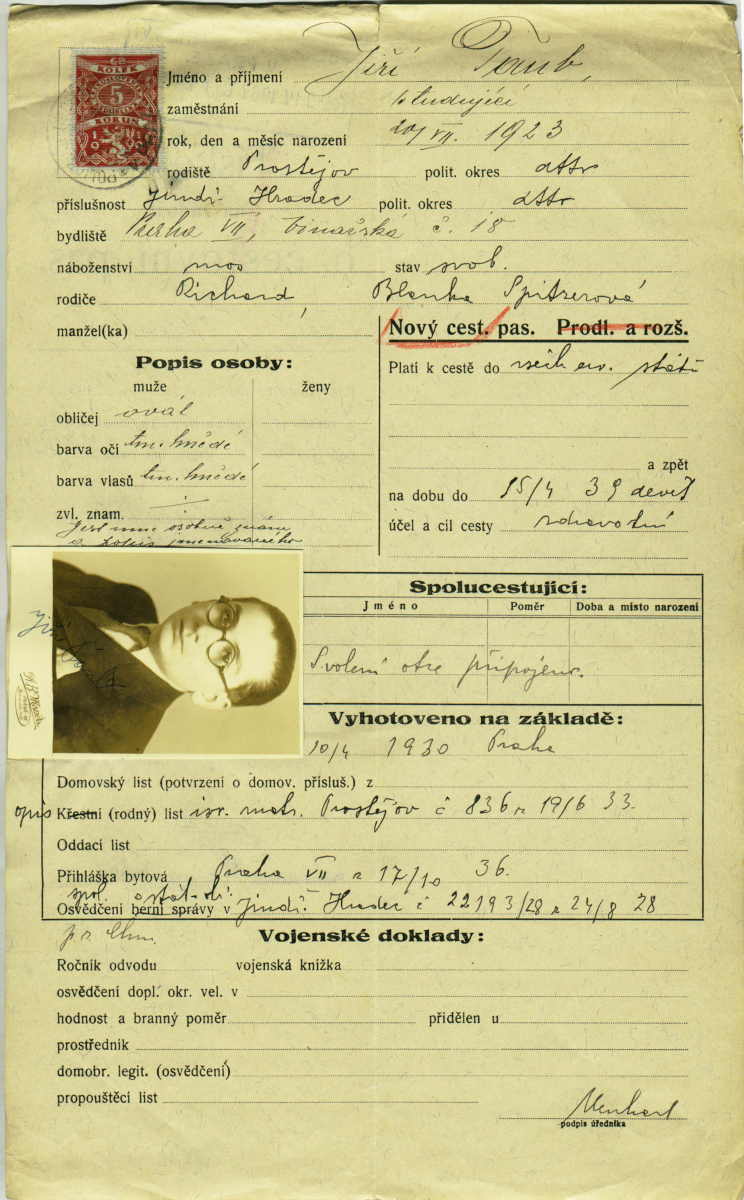 KOLEK
5
KORUN
Jméno a příjmení Jiří Taub,
zaměstnání studující
rok, den a měsíc narození 20/VII. 1923
rodiště Prostějov polit. okres dtto
příslušnost Jindř. Hradec polit. okres dtto
bydliště Praha VII, č. 18
náboženství mos stav svob.
rodiče Richard, Blanka Spitzerová
manžel(ka)
Nový cest. pas. Prodl. a rozš.
Popis osoby:
muže ženy
obličej ovál
barva očí tm. hnědé
barva vlasů tm. hnědé
zvl. znam.
Jest mně osobně znám
a jmenovaného
Platí k cestě do všech ev. států
a zpět
na dobu do 15/4 39 devět
účel a cíl cesty zdravotní
Spolucestující:
Jméno Poměr Doba a místo narození
Svolení otce připojeno.
Jiří Taub
Vyhotoveno na základě:
10/4 1930 Praha
Domovský list (potvrzení o domov. přísluš.) z
opis Křestní (rodný) list isr. matr. Prostějov č 836 z 19/6 33.
Oddací list
Přihláška bytová Praha VII z 17/10 36.
Osvědčení berní správy v Jindř. Hradec č 22193/28 z 24/8 28
Vojenské doklady:
Ročník odvodu vojenská knížka
osvědčení dopl. okr. vel. v
hodnost a branný poměr přidělen u
prostředník
domobr. legit. (osvědčení)
propouštěcí list
podpis úředníka